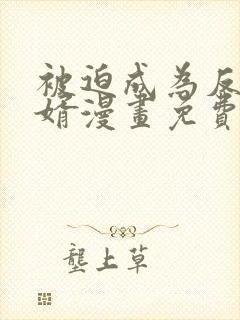 被迫成為反
婿漫畫免費
壟上草